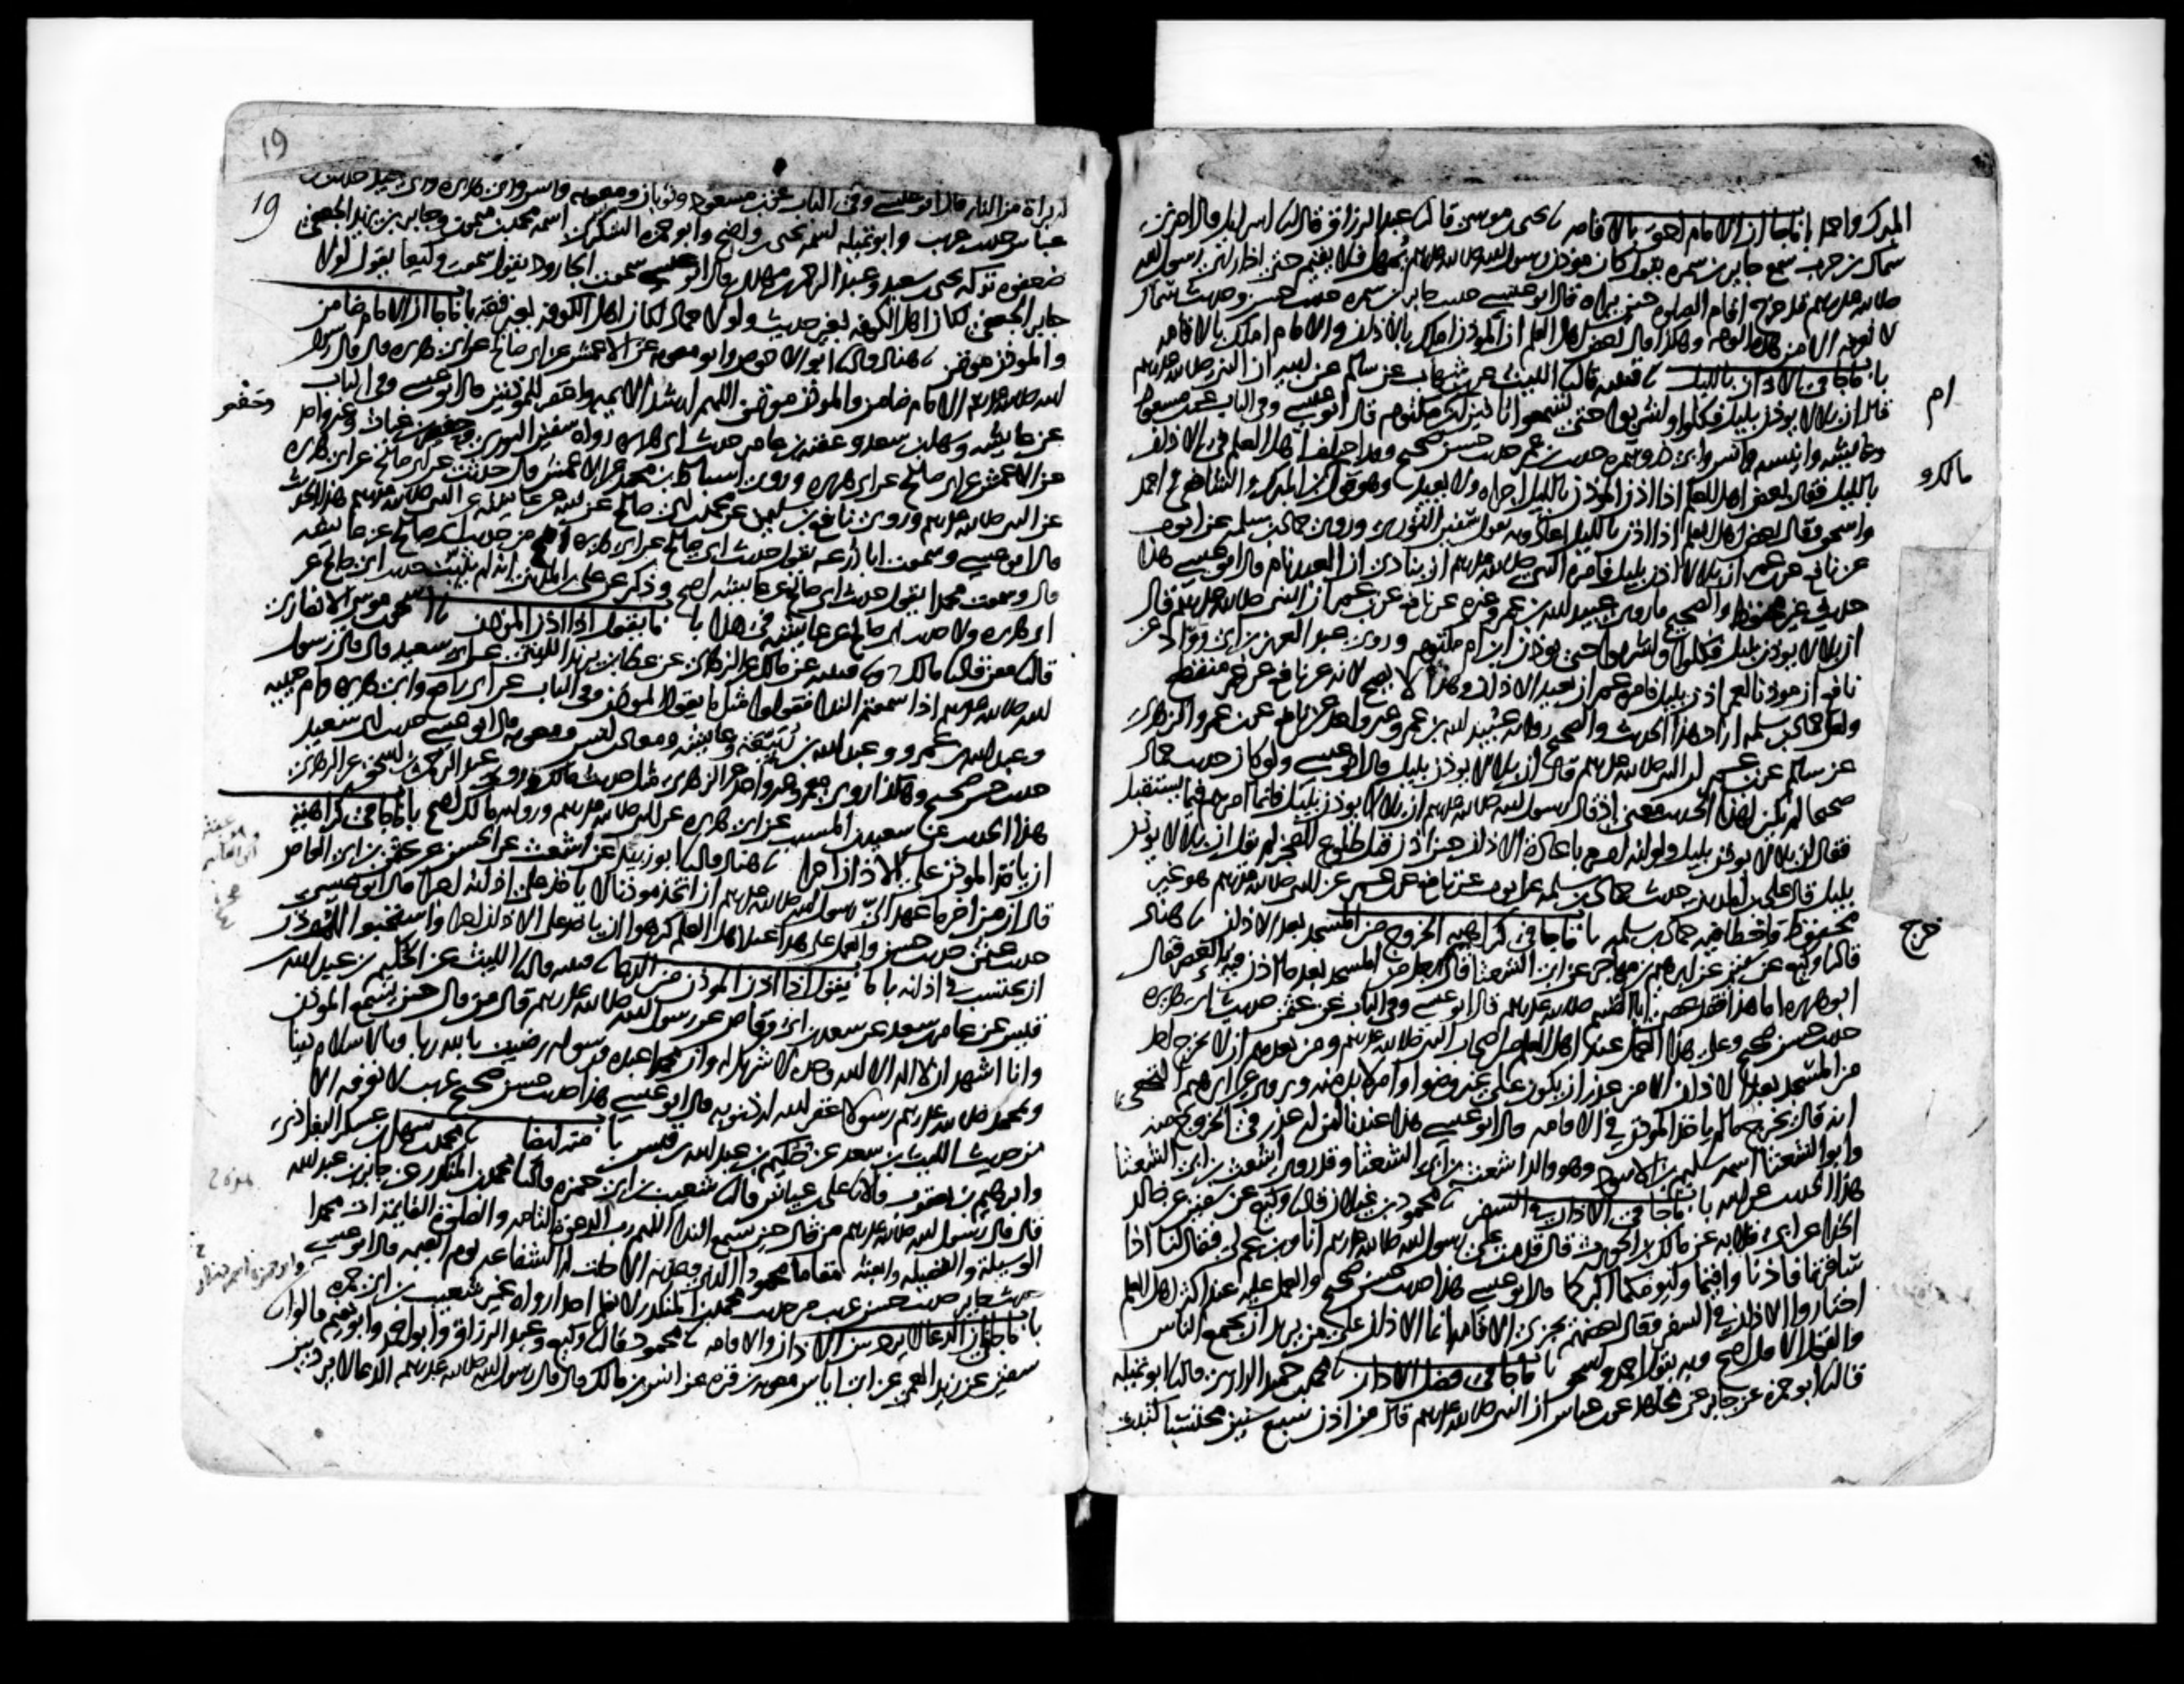 المبرك واحمد باب ما جا ان الامام احق بالاقامه نا يحيى بن موسى قال نا عبد الرزاق قال نا اسرايل قال اخبرني
سماك بن حرب سمع جابر بن سمره يقول كان موذن رسول الله صلى الله عليه وسلم يمهل فلا يقيم حتى اذا راى رسول الله
صلى الله عليه وسلم قد خرج اقام الصلوه حين يراه قال ابو عيسى حديث جابر بن سمره حديث حسن وحديث سماك
لا نعرفه الا من هذا الوجه وهكذا قال بعض اهل العلم ان الموذن املك بالاذان والامام املك بالاقامه
باب ما جا في الاذان بالليل نا قتيبه قال نا الليث عن ابن شهاب عن سالم عن ابيه ان النبي صلى الله عليه وسلم
قال ان بلالا يوذن بليل فكلوا واشربوا حتى تسمعوا تاذين ابن مكتوم قال ابو عيسى وفي الباب عن ابن مسعود
ام
وعايشه وانيسه وانس وابي ذر وسمره حديث ابن عمر حديث حسن صحيح وقد اختلف اهل العلم في الاذان
بالليل فقال بعض اهل العلم اذا اذن الموذن بالليل اجزاه ولا يعيد وهو قول ابن المبرك والشافعي واحمد
مالك و
واسحق وقال بعض اهل العلم اذا اذن بالليل اعاد وبه يقول سفين الثوري وروى حماد بن سلمه عن ايوب
عن نافع عن ابن عمر ان بلالا اذن بليل فامره النبي صلى الله عليه وسلم ان ينادي ان العبد نام قال ابو عيسى هذا
حديث غير محفوظ والصحيح ما روى عبيد الله بن عمر وغيره عن نافع عن ابن عمر ان النبي صلى الله عليه وسلم قال
ان بلالا يوذن بليل فكلوا واشربوا حتى يوذن ابن ام مكتوم وروى عبد العزيز بن ابي رواد عن
نافع ان موذنا لعمر اذن بليل فامره عمر ان يعيد الاذان وهذا لا يصح لانه عن نافع عن عمر منقطع
ولعل حماد بن سلمه اراد هذا الحديث والصحيح روايه عبيد الله بن عمر وغير واحد عن نافع عن ابن عمر والزهري
عن سالم عن ابن عمر ان النبي صلى الله عليه وسلم قال ان بلالا يوذن بليل قال ابو عيسى ولو كان حديث حماد
صحيحا لم يكن لهذا الحديث معنى اذ قال رسول الله صلى الله عليه وسلم ان بلالا يوذن بليل فانما امرهم فيما يستقبل
فقال ان بلالا يوذن بليل ولو انه امره باعادة الاذان حين اذن قبل طلوع الفجر لم يقل ان بلالا يوذن
بليل قال علي بن المديني حديث حماد بن سلمه عن ايوب عن نافع عن ابن عمر عن النبي صلى الله عليه وسلم هو غير
محفوظ واخطا فيه حماد بن سلمه باب ما جا في كراهيه الخروج من المسجد بعد الاذان نا هناد
قال نا وكيع عن سفين عن ابرهيم بن مهاجر عن ابي الشعثا قال رجل من المسجد بعد ما اذن فيه بالعصر فقال
خرج
ابو هريره اما هذا فقد عصى ابا القسم صلى الله عليه وسلم قال ابو عيسى وفي الباب عن عثمن حديث ابي هريره
حديث حسن صحيح وعلى هذا العمل عند اهل العلم من اصحاب النبي صلى الله عليه وسلم ومن بعدهم ان لا يخرج احد
من المسجد بعد الاذان الا من عذر ان يكون على غير وضوا وامر لا بد منه ويروى عن ابرهيم النخعي
انه قال يخرج ما لم ياخذ الموذن في الاقامه قال ابو عيسى هذا عندنا لمن له عذر في الخروج منه
وابو الشعثا اسمه سليم بن الاسود وهو والد اشعث بن ابي الشعثا وقد روى اشعث بن ابي الشعثا
هذا الحديث عن ابيه باب ما جا في الاذان في السفر نا محمود بن غيلان قال نا وكيع عن سفين عن خالد
الحذا عن ابي قلابه عن مالك بن الحويرث قال قدمت على رسول الله صلى الله عليه وسلم انا وابن عم لي فقال لنا اذا
سافرتما فاذنا واقيما وليومكما اكبركما قال ابو عيسى هذا حديث حسن صحيح والعمل عليه عند اكثر اهل العلم
اختاروا الاذان في السفر وقال بعضهم تجزي الاقامه انما الاذان على من يريد ان يجمع الناس
والقول الاول اصح وبه يقول احمد واسحق باب ما جا في فضل الاذان نا محمد بن حميد الرازي قال نا ابو تميله
قال نا ابو حمزه عن جابر عن مجاهد عن ابن عباس ان النبي صلى الله عليه وسلم قال من اذن سبع سنين محتسبا كتبت
19
19
له براة من النار قال ابو عيسى وفي الباب عن ابن مسعود وثوبان ومعويه وانس وابي هريره وابي سعيد حديث ابن
عباس حديث غريب وابو تميله اسمه يحيى بن واضح وابو حمزه السكري اسمه محمد بن ميمون وجابر بن يزيد الجعفي
ضعفوه تركه يحيى بن سعيد وعبد الرحمن بن مهدي قال ابو عيسى سمعت الجارود يقول سمعت وكيعا يقول لولا
جابر الجعفي لكان اهل الكوفه بغير حديث ولولا حماد لكان اهل الكوفه بغير فقه باب ما جا ان الامام ضامن
والموذن موتمن نا هناد قال نا ابو الاحوص وابو معويه عن الاعمش عن ابي صالح عن ابي هريره قال قال رسول
الله صلى الله عليه وسلم الامام ضامن والموذن موتمن اللهم ارشد الايمه واغفر للموذنين قال ابو عيسى وفي الباب
عن عايشه وسهل بن سعد وعقبه بن عامر حديث ابي هريره رواه سفين الثوري وحفص بن غياث وغير واحد
وحفص
عن الاعمش عن ابي صالح عن ابي هريره وروى اسباط بن محمد عن الاعمش قال حدثت عن ابي صالح عن ابي هريره
عن النبي صلى الله عليه وسلم وروى نافع بن سليمن عن محمد بن ابي صالح عن ابيه عن عايشه عن النبي صلى الله عليه وسلم هذا الحديث
قال ابو عيسى وسمعت ابا زرعه يقول حديث ابي صالح عن ابي هريره اصح من حديث ابي صالح عن عايشه
قال وسمعت محمدا يقول حديث ابي صالح عن عايشه اصح وذكر عن علي بن المديني انه لم يثبت حديث ابي صالح عن
ابي هريره ولا حديث ابي صالح عن عايشه في هذا باب ما يقول اذا اذن الموذن نا اسحق بن موسى الانصاري
قال نا معن قال نا مالك ونا قتيبه عن مالك عن الزهري عن عطا بن يزيد الليثي عن ابي سعيد قال قال رسول
الله صلى الله عليه وسلم اذا سمعتم الندا فقولوا مثل ما يقول الموذن وفي الباب عن ابي رافع وابي هريره وام حبيبه
وعبد الله بن عمرو وعبد الله بن ربيعه وعايشه ومعاذ بن انس ومعويه قال ابو عيسى حديث ابي سعيد
حديث حسن صحيح وهكذا روى معمر وغير واحد عن الزهري مثل حديث مالك وروى عبد الرحمن بن اسحق عن الزهري
هذا الحديث عن سعيد بن المسيب عن ابي هريره عن النبي صلى الله عليه وسلم وروايه مالك اصح باب ما جا في كراهية
ان ياخذ الموذن على الاذان اجرا نا هناد قال نا ابو زبيد عن اشعث عن الحسن عن عثمن بن ابي العاص
قال ان من اخر ما عهد الي رسول الله صلى الله عليه وسلم ان اتخذ موذنا لا ياخذ على اذانه اجرا قال ابو عيسى
حديث عثمن حديث حسن والعمل على هذا عند اهل العلم كرهوا ان ياخذ على الاذان اجرا واستحبوا للموذن
ان يحتسب في اذانه باب ما يقول اذا اذن الموذن من الدعا نا قتيبه قال نا الليث عن الحكيم بن عبد الله بن
قيس عن عامر بن سعد عن سعد بن ابي وقاص عن رسول الله صلى الله عليه وسلم قال من قال حين يسمع الموذن
وانا اشهد ان لا اله الا الله وحده لا شريك له وان محمدا عبده ورسوله رضيت بالله ربا وبالاسلام دينا
وبمحمد صلى الله عليه وسلم رسولا غفر الله له ذنوبه قال ابو عيسى هذا حديث حسن صحيح غريب لا نعرفه الا
من حديث الليث بن سعد عن حكيم بن عبد الله بن قيس باب منه ايضا نا محمد بن سهل بن عسكر البغدادي
وابرهيم بن يعقوب قالا نا علي بن عياش قال نا شعيب بن ابي حمزه قال نا محمد بن المنكدر عن جابر بن عبد الله
قال قال رسول الله صلى الله عليه وسلم من قال حين يسمع الندا اللهم رب الدعوة التامه والصلوة القايمة ات محمدا
الوسيلة والفضيله وابعثه مقاما محمودا الذي وعدته الا حلت له الشفاعه يوم القيمه قال ابو عيسى
حديث جابر حديث حسن غريب من حديث محمد بن المنكدر لا نعلم احدا رواه غير شعيب بن ابي حمزه
باب ما جا ان الدعا لا يرد بين الاذان والاقامه نا محمود قال نا وكيع وعبد الرزاق وابو احمد وابو نعيم قالوا نا
سفين عن زيد العمي عن ابي اياس معويه بن قره عن انس بن مالك قال قال رسول الله صلى الله عليه وسلم الدعا لا يرد بين